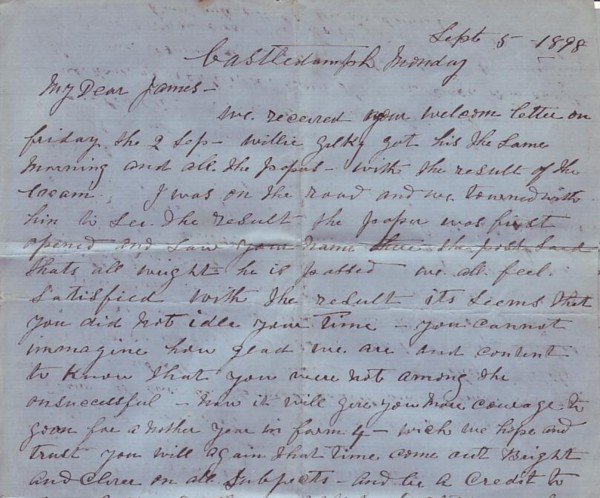 Sept 5 - 1898
Castledamph Monday
My Dear James -
We received your welcome letter on
friday the 2 Sep - Willie got his the same
morning and all the papers - with the result of the
Exam. I was on the road and we turned with
him to see the result the paper was first
opened and saw your name there the post said
thats all wright he is passed we all feel
satisfied with the result its seems that
you did not idle your time - you cannot
immagine how glad we are and content
to know that you were not among the
onsuccessful - now it will give you more courage to
goon for another year in form 4 - wich we hope and
trust you will again that time come out Bright
and Clever on all Subjects - and be a Credit to